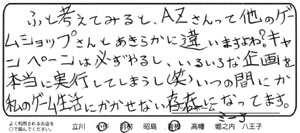 ふと考えてみると、AZさんって他のゲー
ムショップさんとあきらかに違いますよね?キャン
ペーンは必ずやるし、いろいろな企画を
本当に実行してしまうし(笑)いつの間にか
私のゲーム生活にかかせない存在になってます。
よく利用されるお店を
○で囲んでください。
立川 羽村 昭島 高幡 堀之内 八王子